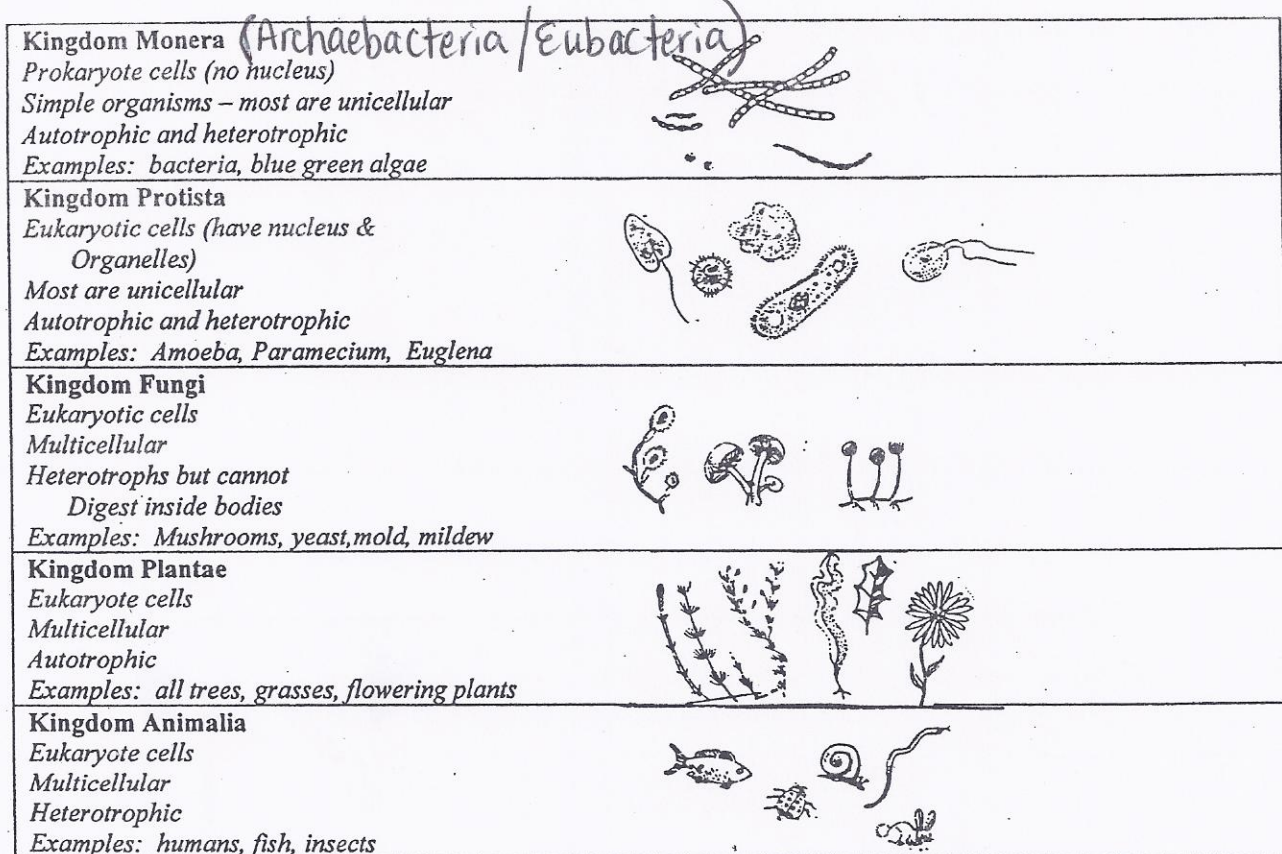 Kingdom Monera (Archaebacteria/Eubacteria)
Prokaryote cells (no nucleus)
Simple organisms – most are unicellular
Autotrophic and heterotrophic
Examples: bacteria, blue green algae
Kingdom Protista
Eukaryotic cells (have nucleus &
Organelles)
Most are unicellular
Autotrophic and heterotrophic
Examples: Amoeba, Paramecium, Euglena
Kingdom Fungi
Eukaryotic cells
Multicellular
Heterotrophs but cannot
Digest inside bodies
Examples: Mushrooms, yeast,mold, mildew
Kingdom Plantae
Eukaryote cells
Multicellular
Autotrophic
Examples: all trees, grasses, flowering plants
Kingdom Animalia
Eukaryote cells
Multicellular
Heterotrophic
Examples: humans, fish, insects